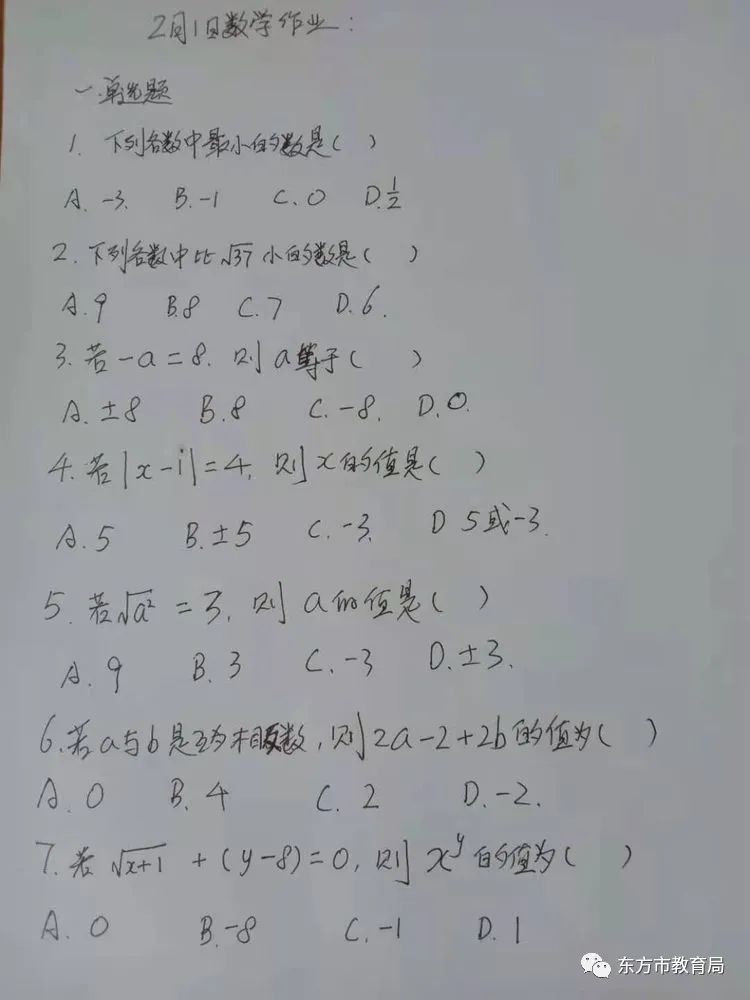 2月1日数学作业:
一.单选题
1. 下列各数中最小的数是( )
A. -3. B. -1 C. 0 D. 1/2
2. 下列各数中比√37小的数是( )
A. 9 B. 8 C. 7 D. 6.
3. 若-a=8. 则a等于( )
A. ±8 B. 8 C. -8. D. 0.
4. 若|x-1|=4, 则x的值是( )
A. 5 B. ±5 C. -3. D 5或-3.
5. 若√a² = 3, 则a的值是( )
A. 9 B. 3 C. -3 D. ±3.
6. 若a与b是互为相反数, 则2a-2+2b的值为( )
A. 0 B. 4 C. 2 D. -2.
7. 若√x+1 + (y-8)=0, 则x^y的值为( )
A. 0 B. -8 C. -1 D. 1
东方市教育局